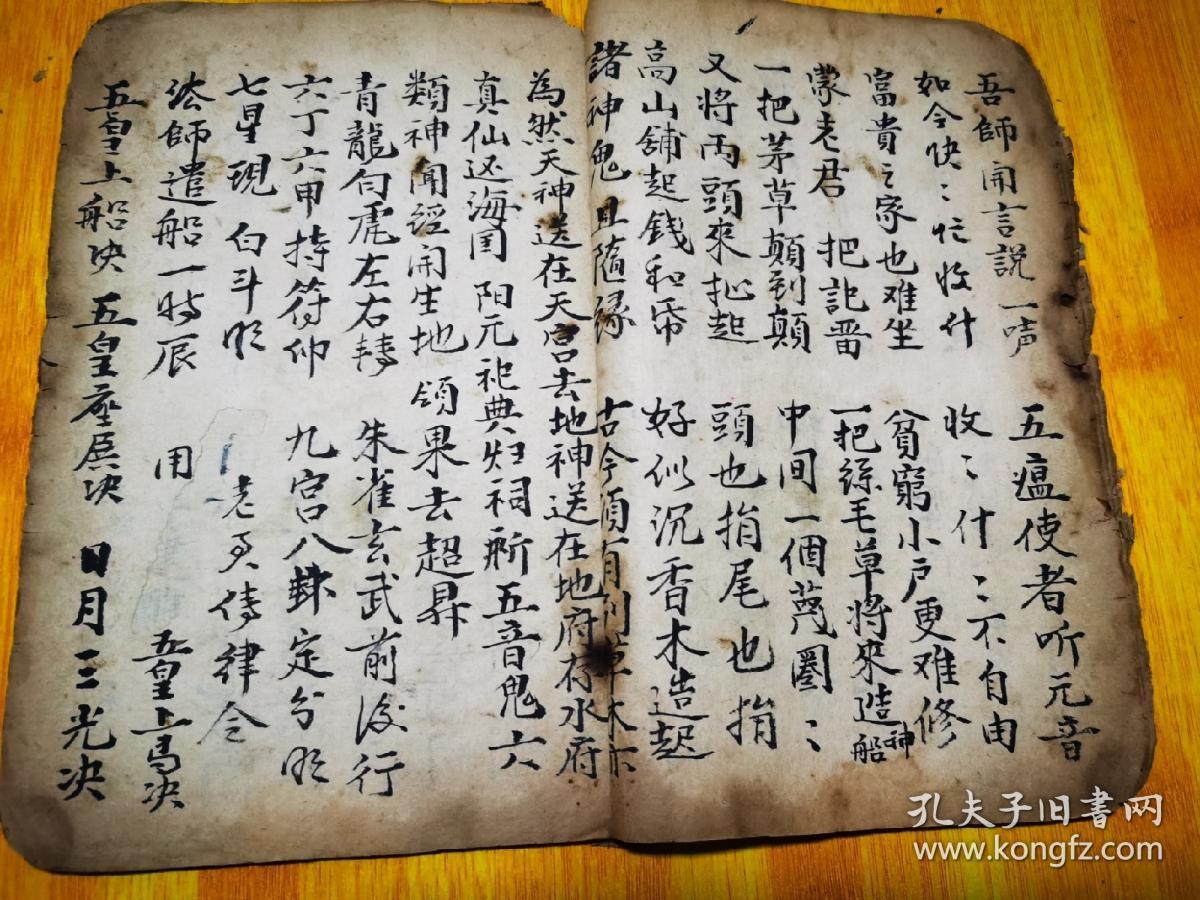 吾師開言說一声 五瘟使者听元音
如今快〻忙收什 收〻什〻不自由
富貴之家也难坐 貧窮小戶更难修
蒙老君 把訨畨 一把絲毛草將來造神船
一把茅草顛到顛 中间一個篾圈〻
又將両頭來扯起 頭也揹尾也揹
高山舖起錢和帋 好似沉香木造起
諸神鬼且隨縁 古今須有 草木亦
為然天神送在天宫去地神送在地府存水府
真仙送海国 阳元祀典归祠 五音鬼六
類神闻經開生地 領果去超昇
青龍白虎左右轉 朱雀玄武前後行
六丁六甲持符仰 九宫八卦定分明
七星現 白斗明 老君侓律令
法師遣船一時辰 用 五皇上馬决
五皇上船决 五皇座居决 日月三光决
孔夫子旧书网
www.kongfz.com